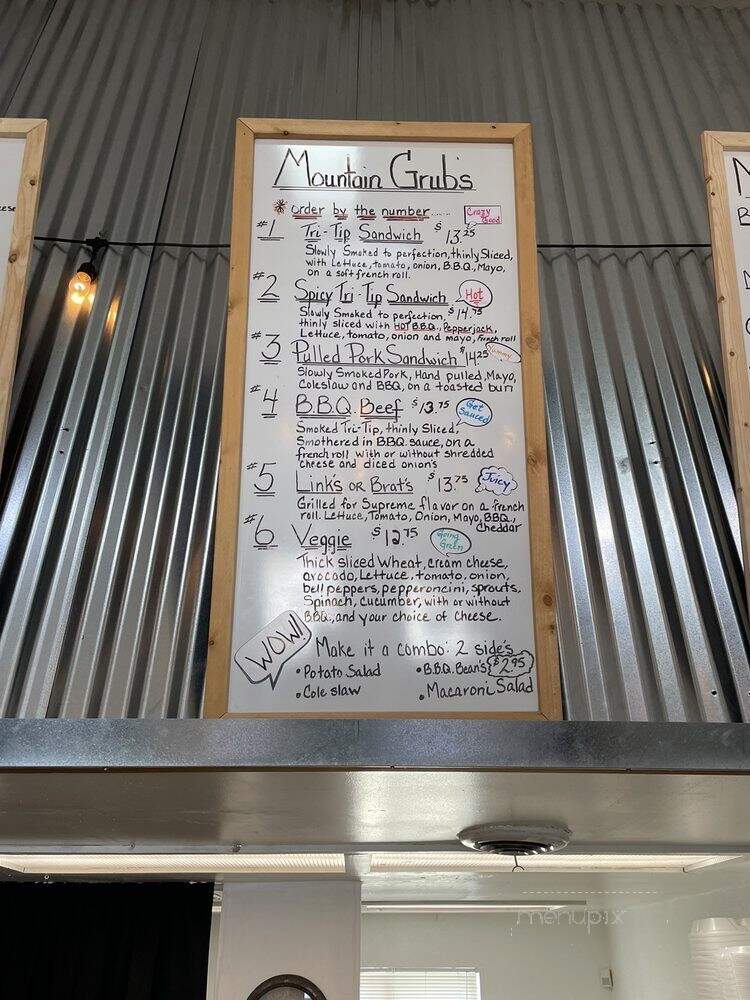 Mountain Grub's
* order by the number...... Crazy Good
#1 Tri-Tip Sandwich $13.25
Slowly Smoked to perfection, thinly Sliced,
with Lettuce, tomato, onion, B.B.Q., Mayo,
on a soft french roll.
#2 Spicy Tri-Tip Sandwich Hot
Slowly Smoked to perfection, $14.75
thinly sliced with HOT B.B.Q., Pepperjack,
Lettuce, tomato, onion and mayo, french roll
#3 Pulled Pork Sandwich $14.25 Yummy
Slowly Smoked Pork, Hand pulled, Mayo,
Coleslaw and BBQ, on a toasted bun
#4 B.B.Q. Beef $13.75 Get Sauced
Smoked Tri-Tip, thinly Sliced,
Smothered in B.B.Q. sauce, on a
french roll with or without shredded
cheese and diced onion's
#5 Link's or Brat's $13.75 Juicy
Grilled for Supreme flavor on a french
roll. Lettuce, Tomato, Onion, Mayo, B.B.Q.,
Cheddar
#6 Veggie $12.75 Going Green
Thick sliced Wheat, cream cheese,
avocado, Lettuce, tomato, onion,
bell peppers, pepperoncini, sprouts,
Spinach, cucumber, with or without
B.B.Q., and your choice of cheese.
WOW! Make it a combo: 2 side's
• Potato Salad • B.B.Q. Bean's $2.95
• Cole slaw • Macaroni Salad
menupix